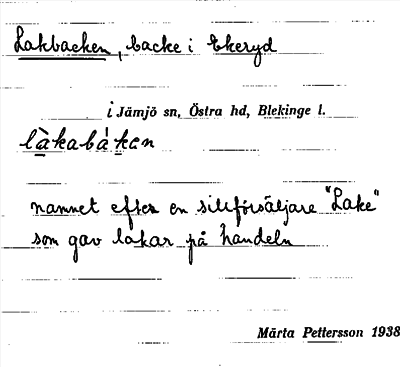 Lakbacken, backe i Ekeryd
i Jämjö sn, Östra hd, Blekinge l.
làkabákan
namnet efter en sillförsäljare "Lake"
som gav lakar på handeln
Märta Pettersson 1938